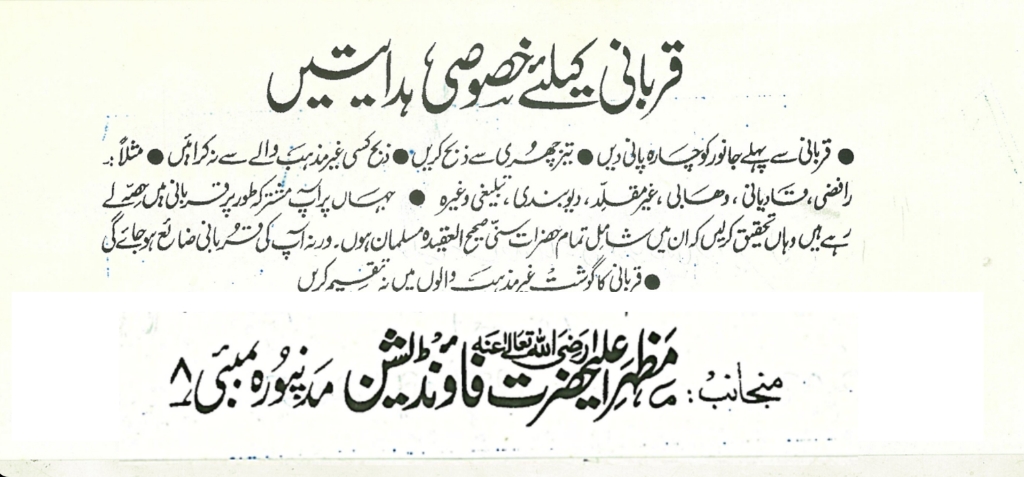 قربانی کیلئے خصوصی ہدایتیں
● قربانی سے پہلے جانور کو چارہ پانی دیں ● تیز چھری سے ذبح کریں ● ذبح کسی غیر مذہب والے سے نہ کرائیں ● مثلاً:۔
رافضی، قادیانی، وھابی، غیر مقلد، دیوبندی، تبلیغی وغیرہ ● جہاں پر آپ مشترکہ طور پر قربانی میں حصہ لے
رہے ہیں وہاں تحقیق کرلیں کہ ان میں شامل تمام حضرات سنی صحیح العقیدہ مسلمان ہوں۔ ورنہ آپ کی قربانی ضائع ہو جائے گی
● قربانی کا گوشت غیر مذہب والوں میں نہ تقسیم کریں
منجانب: مظہر اعلیٰحضرت رضی اللہ تعالیٰ عنہ فاؤنڈیشن مدنپورہ ممبئی ۸